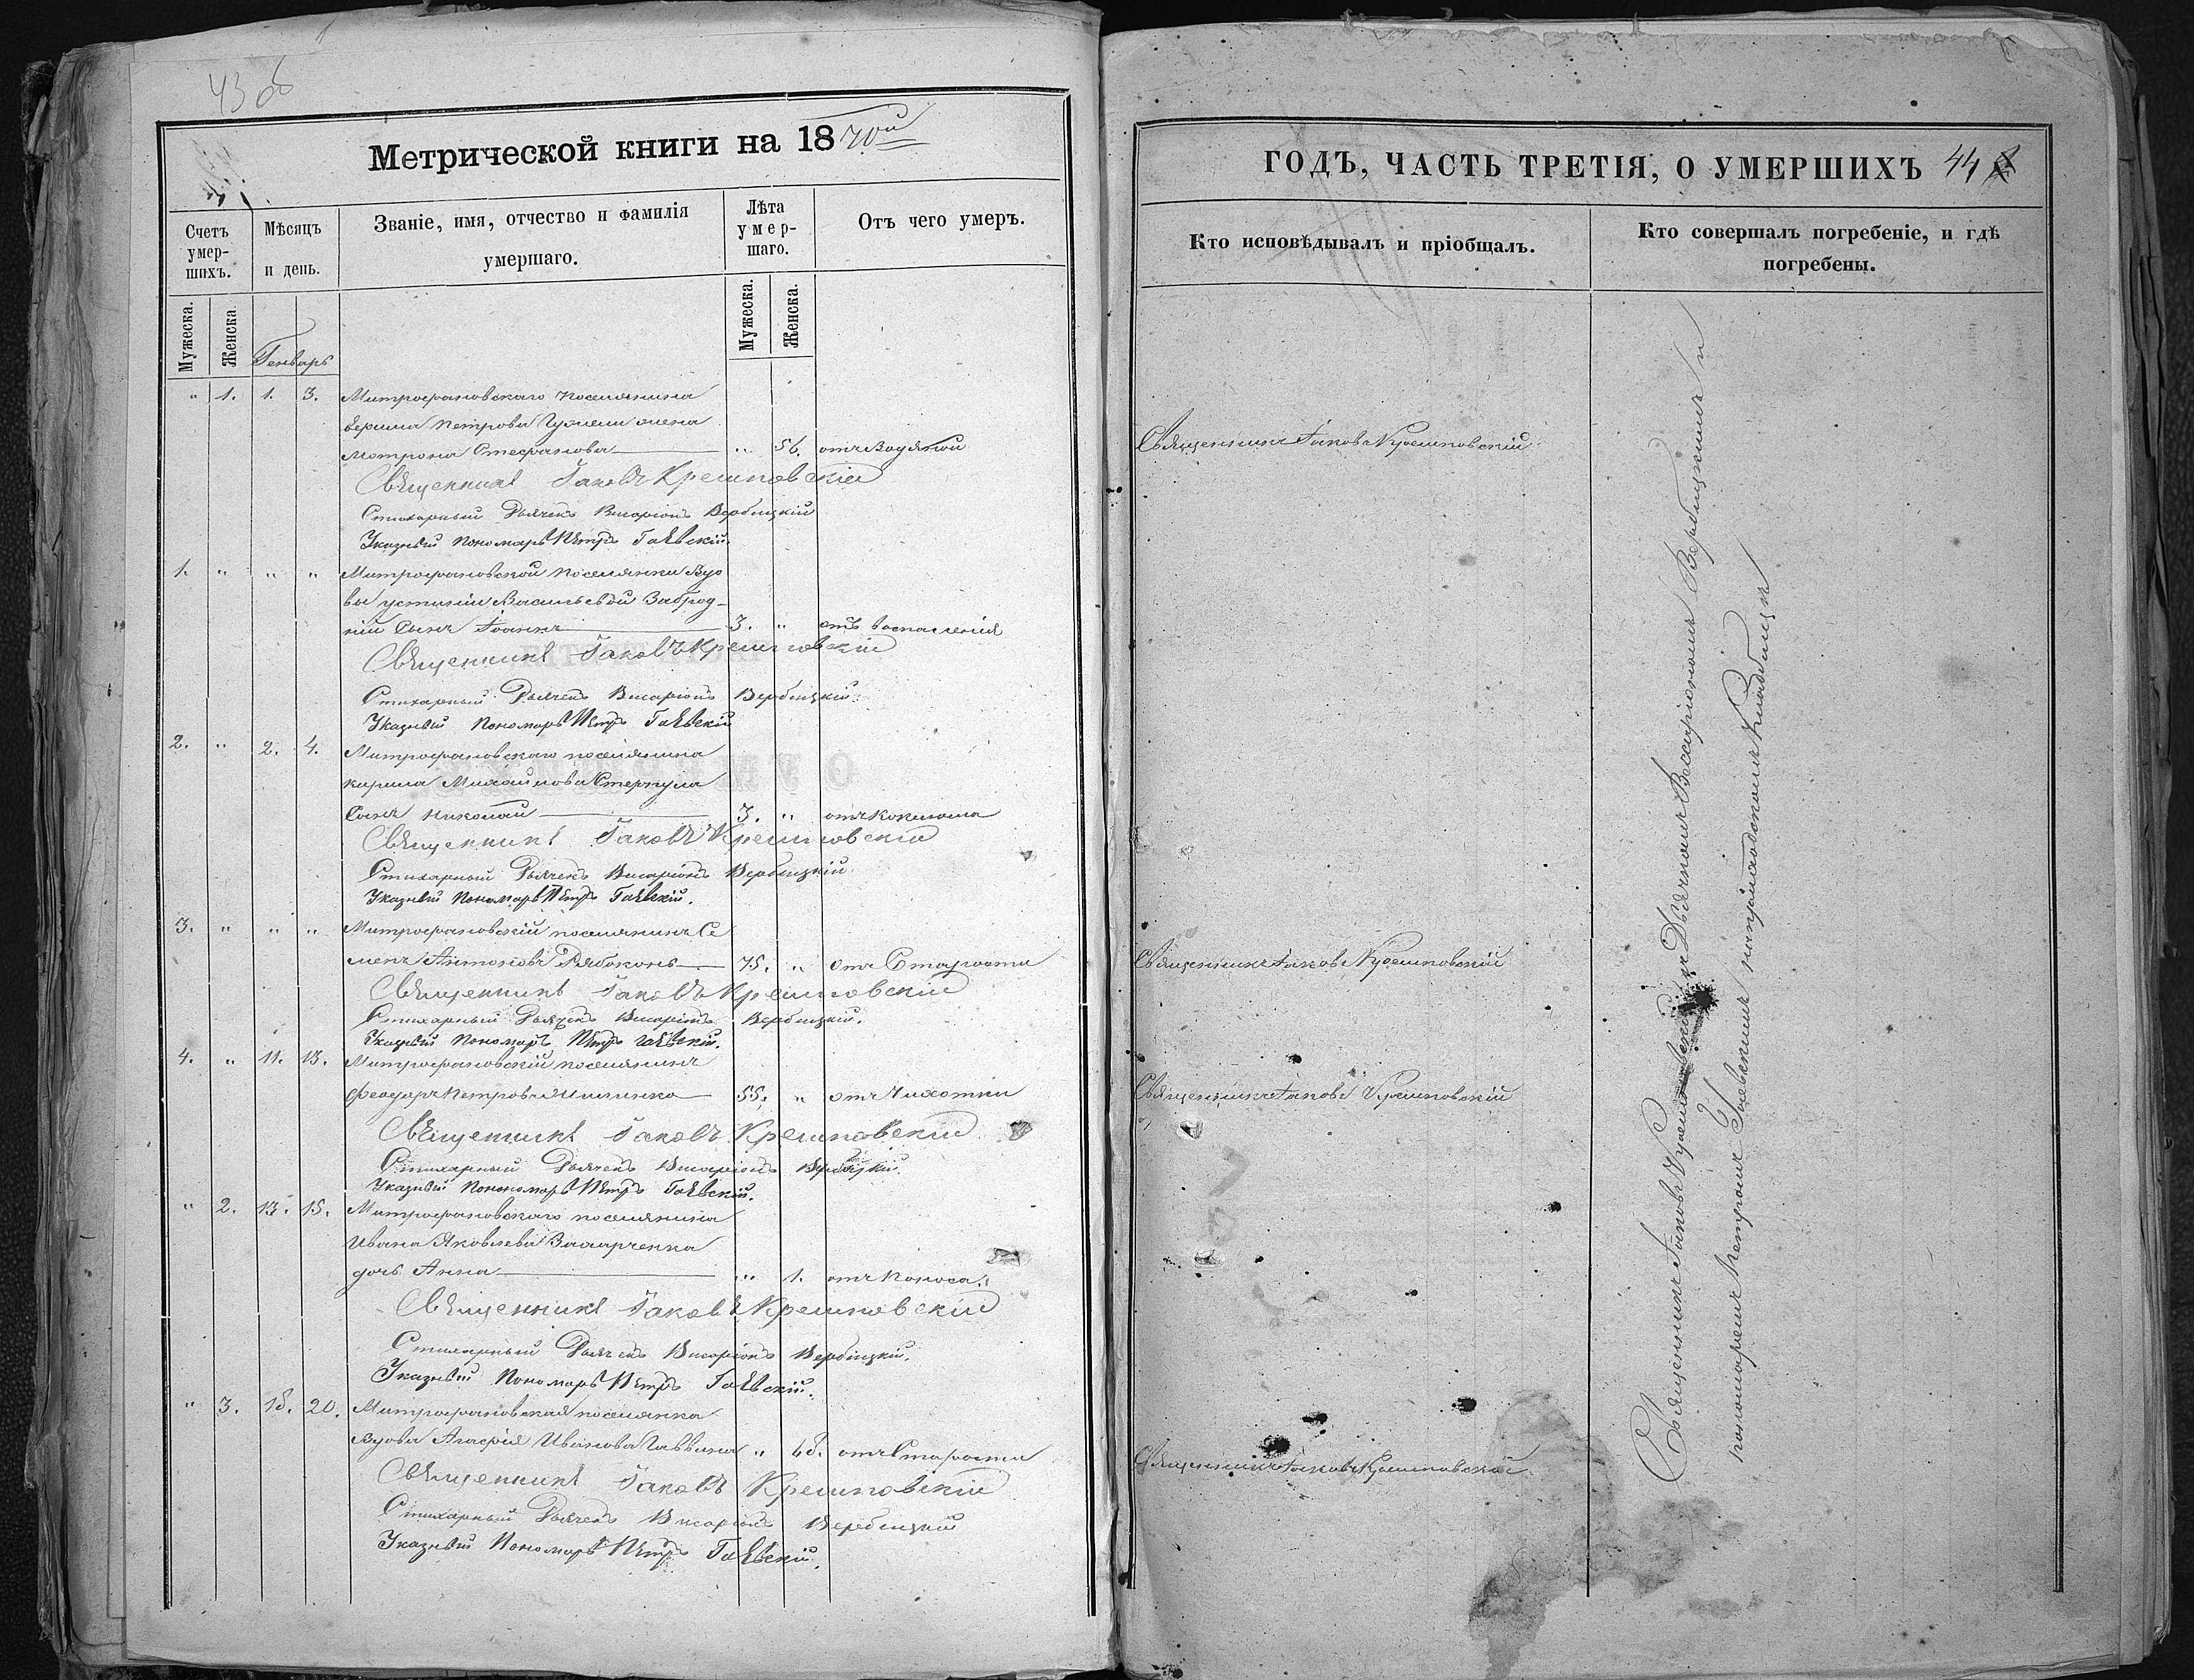 43 об
Метрической книги на 1870й
Счетъ умер-шихъ.
Мѣсяцъ и день.
Званіе, имя, отчество и фамилія умершаго.
Лѣта умер-шаго.
Отъ чего умеръ.
Мужеска.
Женска.
Генварь
Мужеска.
Женска.
" 1. 1. 3. Митрофановскаго поселянина
Петрова жена
Мотрона Стефанова " 56. отъ водяной
Священникъ Іаковъ Крешновскій
Стихарный Дьячекъ Висаріонъ Вербицкій
Указный Пономарь Петръ Гаевскій.
1. " " " Митрофановской поселянки Вдо
вы Устиніи Васильевой Заброд-
ній Сынъ Іоаннъ 3. " отъ воспаленія
Священникъ Іаковъ Крешновскій
Стихарный Дьячекъ Висаріонъ Вербицкій.
Указный Пономарь Петръ Гаевскій
2. " 2. 4. Митрофановскаго поселянина
Кирила Михайлова
Сынъ Николай 3. " отъ коклюша
Священникъ Іаковъ Крешновскій
Стихарный Дьячекъ Висаріонъ Вербицкій.
Указный Пономарь Петръ Гаевскій.
3. " " " Митрофановскій поселянинъ Се
менъ Антоновъ Рябоконь 75. " отъ Старости
Священникъ Іаковъ Крешновскій
Стихарный Дьячекъ Висаріонъ Вербицкій.
Указный Пономарь Петръ Гаевскій.
4. " 11. 13. Митрофановскій поселянинъ
Феодоръ Петровъ 55. " отъ Чахотки
Священникъ Іаковъ Крешновскій
Стихарный Дьячекъ Висаріонъ Вербицкій.
Указный Понономарь Петръ Гаевскій.
" 2. 13. 15. Митрофановскаго поселянина
Ивана Яковлева Захарченка
дочь Анна " 1. отъ Поноса.
Священникъ Іаковъ Крешновскій
Стихарный Дьячекъ Висаріонъ Вербицкій.
Указный Пономарь Петръ Гаевскій.
" 3. 18. 20. Митрофановская поселянка
Вдова Агафія Иванова " 68. отъ Старости
Священникъ Іаковъ Крешновскій
Стихарный Дьячекъ Висаріонъ Вербицкій
Указный Пономарь Петръ Гаевскій.
ГОДЪ, ЧАСТЬ ТРЕТІЯ, О УМЕРШИХЪ 44
Кто исповѣдывалъ и пріобщалъ.
Кто совершалъ погребеніе, и гдѣ погребены.
Священникъ Іаковъ Крешновскій
Священникъ Іаковъ Крешновскій
Священникъ Іаковъ Крешновскій
Священникъ Іаковъ Крешновскій
Священникъ Іаковъ Крешновскій съ Дьячкомъ Виссаріономъ Вербицкимъ и
пономаремъ Петромъ Гаевскимъ на приходскомъ кладбищѣ